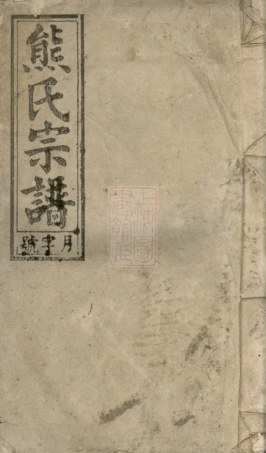 熊氏宗譜
月字號